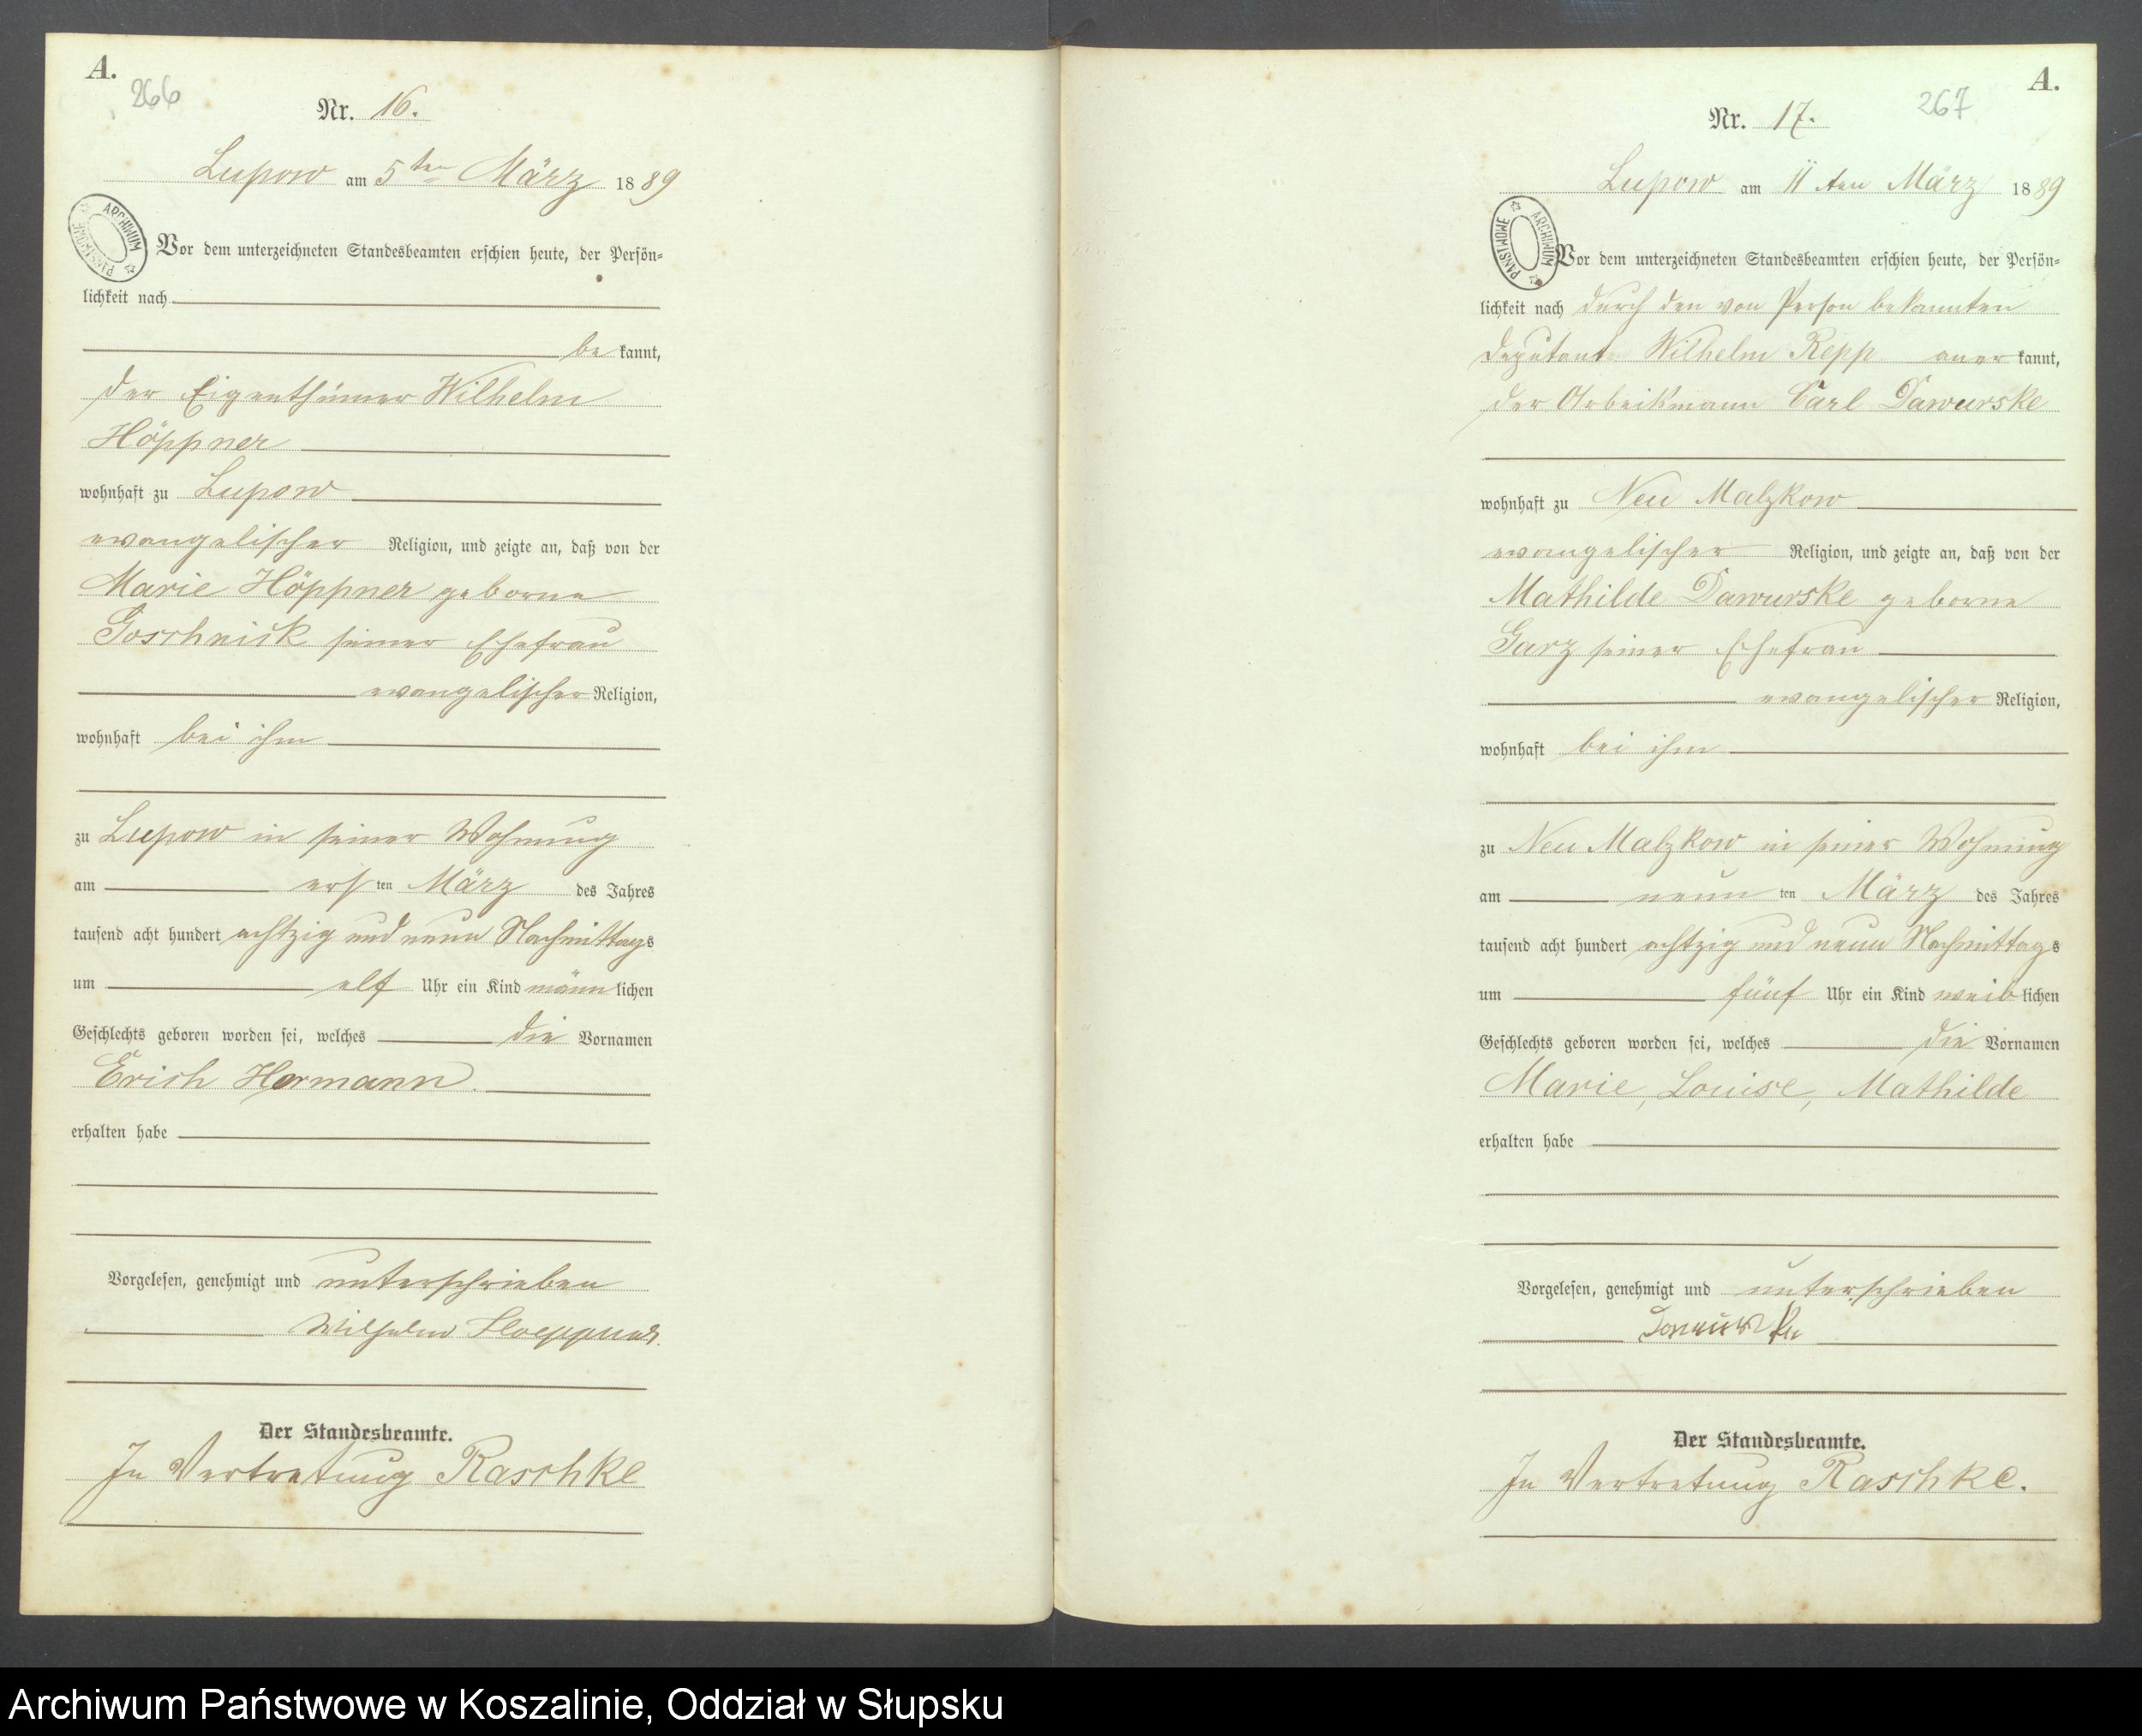 A.
266
Nr. 16.
Lupow am 5ten März 1889
ARCHIWUM PAŃSTWOWE
Vor dem unterzeichneten Standesbeamten erschien heute, der Persön-
lichkeit nach
be kannt,
der Eigenthümer Wilhelm
Höppner
wohnhaft zu Lupow
evangelischer Religion, und zeigte an, daß von der
Marie Höppner geborne
Goschnick seiner Ehefrau
evangelischer Religion,
wohnhaft bei ihm
zu Lupow in seiner Wohnung
am ersten März des Jahres
tausend acht hundert achtzig und neun Nachmittags
um elf Uhr ein Kind männlichen
Geschlechts geboren worden sei, welches die Vornamen
Erich Hermann.
erhalten habe
Vorgelesen, genehmigt und unterschrieben
Wilhelm Hoeppner.
Der Standesbeamte.
In Vertretung Raschke
A.
267
Nr. 17.
Lupow am 11ten März 1889
ARCHIWUM PAŃSTWOWE
Vor dem unterzeichneten Standesbeamten erschien heute, der Persön-
lichkeit nach durch den von Person bekannten
Deputant Wilhelm Repp anerkannt,
der Arbeitsmann Carl Dawurske
wohnhaft zu Neu Malzkow
evangelischer Religion, und zeigte an, daß von der
Mathilde Dawurske geborne
Garz seiner Ehefrau
evangelischer Religion,
wohnhaft bei ihm
zu Neu Malzkow in seiner Wohnung
am neunten März des Jahres
tausend acht hundert achtzig und neun Nachmittags
um fünf Uhr ein Kind weiblichen
Geschlechts geboren worden sei, welches die Vornamen
Marie, Louise, Mathilde
erhalten habe
Vorgelesen, genehmigt und unterschrieben
Der Standesbeamte.
In Vertretung Raschke.
Archiwum Państwowe w Koszalinie, Oddział w Słupsku